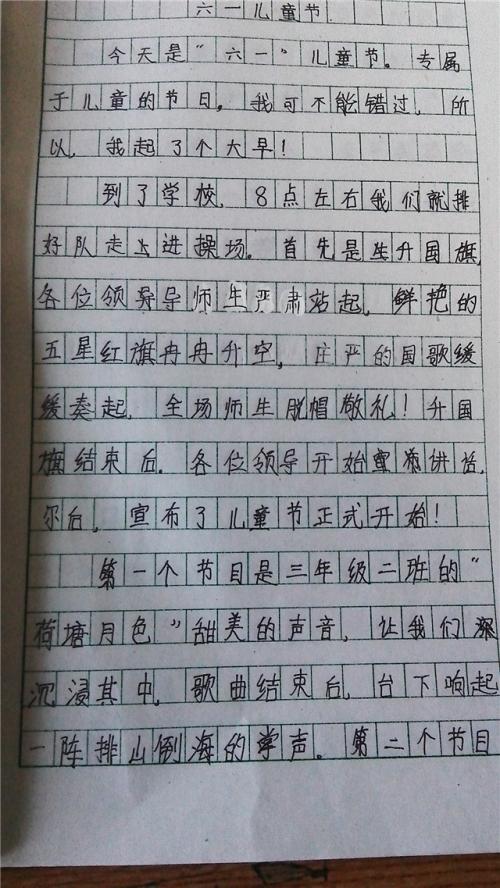 六一儿童节
今天是“六一”儿童节。专属
于儿童的节日，我可不能错过，所
以，我起了个大早！
到了学校，8点左右我们就排
好队走上进操场。首先是生升国旗，
各位领导导师生严肃站起，鲜艳的
五星红旗冉冉升空，庄严的国歌缓
缓奏起，全场师生脱帽敬礼！升国
旗结束后，各位领导开始讲话，
尔后，宣布了儿童节正式开始！
第一个节目是三年级二班的“
荷塘月色”甜美的声音，让我们深
沉浸其中，歌曲结束后，台下响起
一阵排山倒海的掌声。第二个节目